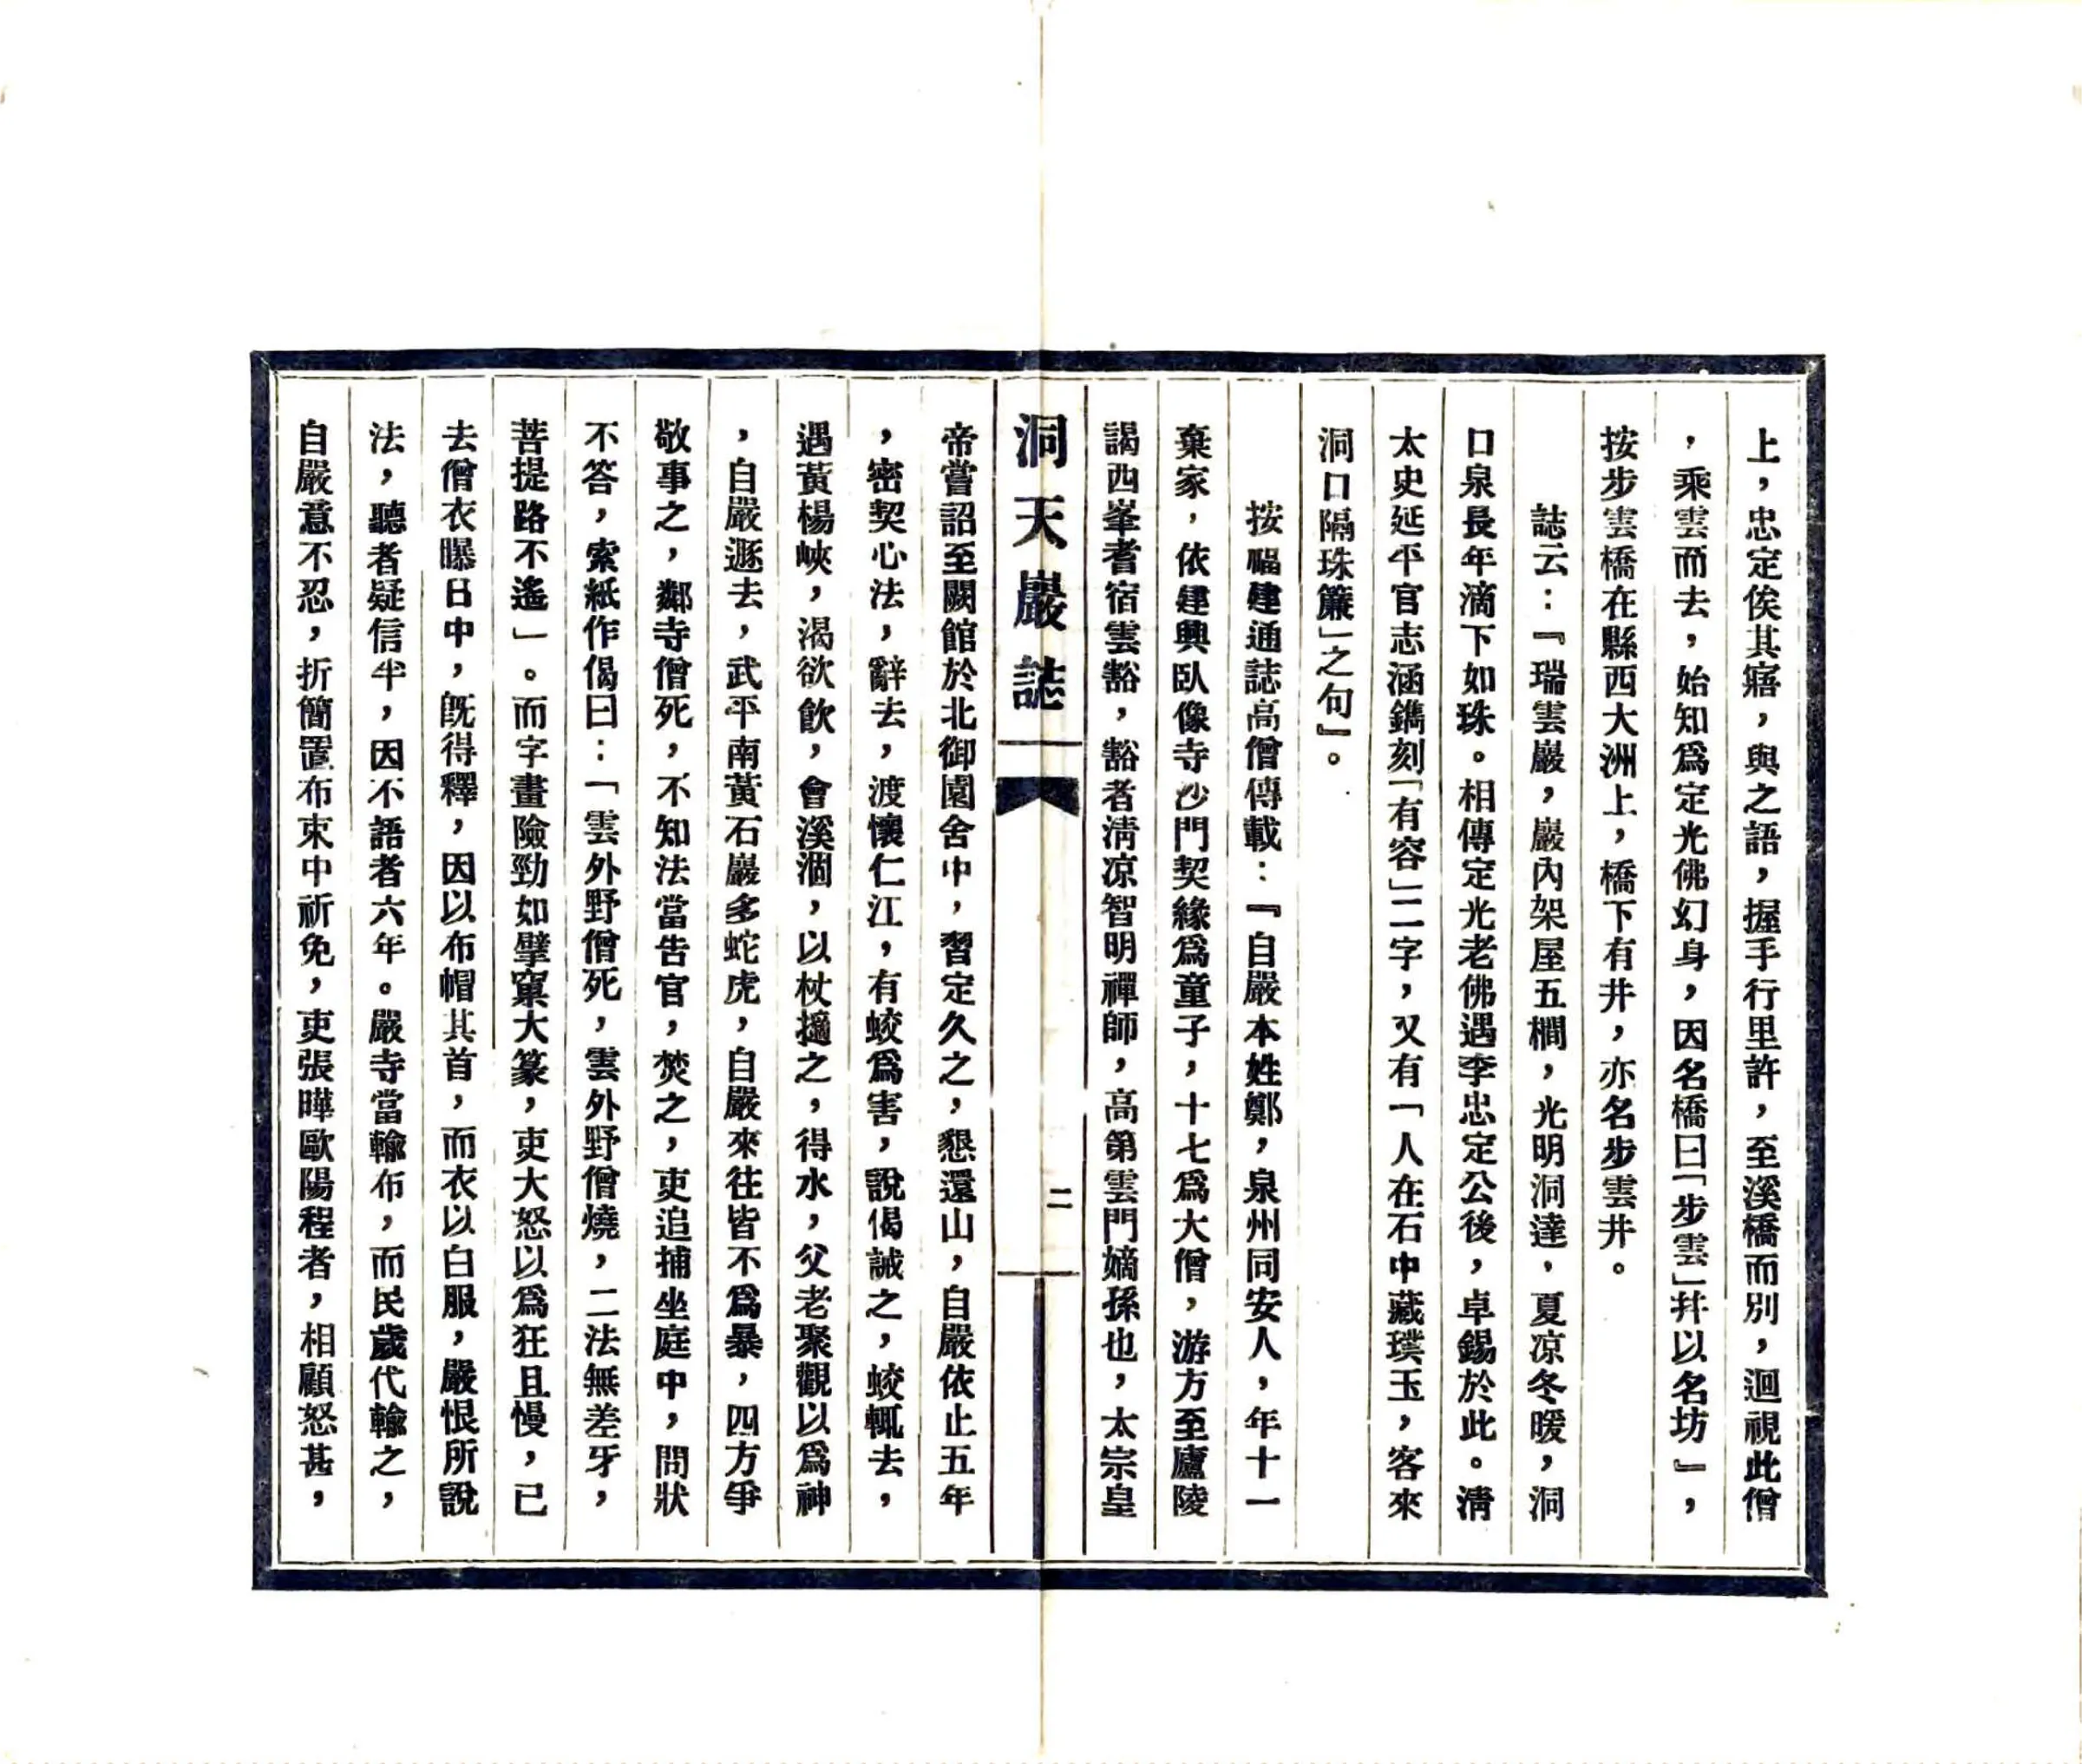 上，忠定俟其寤，與之語，握手行里許，至溪橋而別，迴視此僧
，乘雲而去，始知爲定光佛幻身，因名橋曰「步雲」幷以名坊』，
按步雲橋在縣西大洲上，橋下有井，亦名步雲井。
誌云：『瑞雲巖，巖內架屋五橺，光明洞達，夏凉冬暖，洞
口泉長年滴下如珠。相傳定光老佛遇李忠定公後，卓錫於此。淸
太史延平官志涵鐫刻「有容」二字，又有「人在石中藏璞玉，客來
洞口隔珠簾」之句』。
按福建通誌高僧傳載：『自嚴本姓鄭，泉州同安人，年十一
棄家，依建興臥像寺沙門契緣爲童子，十七爲大僧，游方至廬陵
謁西峯耆宿雲豁，豁者淸凉智明禪師，高第雲門嫡孫也，太宗皇
洞天巖誌
二
帝嘗詔至闕館於北御園舍中，習定久之，懇還山，自嚴依止五年
，密契心法，辭去，渡懷仁江，有蛟爲害，說偈誡之，蛟輒去，
遇黃楊峽，渴欲飮，會溪涸，以杖擿之，得水，父老聚觀以爲神
，自嚴遯去，武平南黃石巖多蛇虎，自嚴來往皆不爲暴，四方爭
敬事之，鄰寺僧死，不知法當告官，焚之，吏追捕坐庭中，問狀
不答，索紙作偈曰：「雲外野僧死，雲外野僧燒，二法無差牙，
菩提路不遙」。而字畫險勁如擘窠大篆，吏大怒以爲狂且慢，已
去僧衣曝日中，旣得釋，因以布帽其首，而衣以白服，嚴恨所說
法，聽者疑信半，因不語者六年。嚴寺當輸布，而民歲代輸之，
自嚴意不忍，折簡置布束中祈免，吏張曄歐陽程者，相顧怒甚，